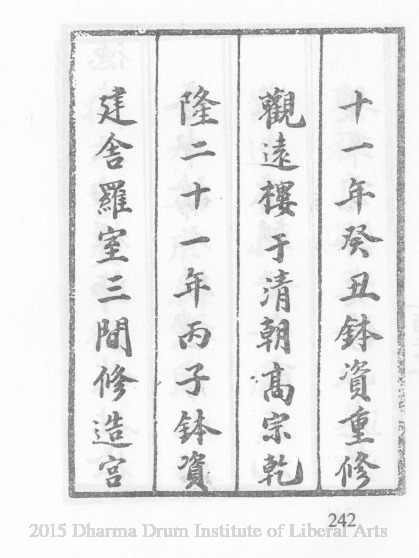 十一年癸丑鉢資重修
觀遠樓于清朝高宗乾
隆二十一年丙子鉢資
建舍羅室三間修造宮
242
2015 Dharma Drum Institute of Liberal Arts